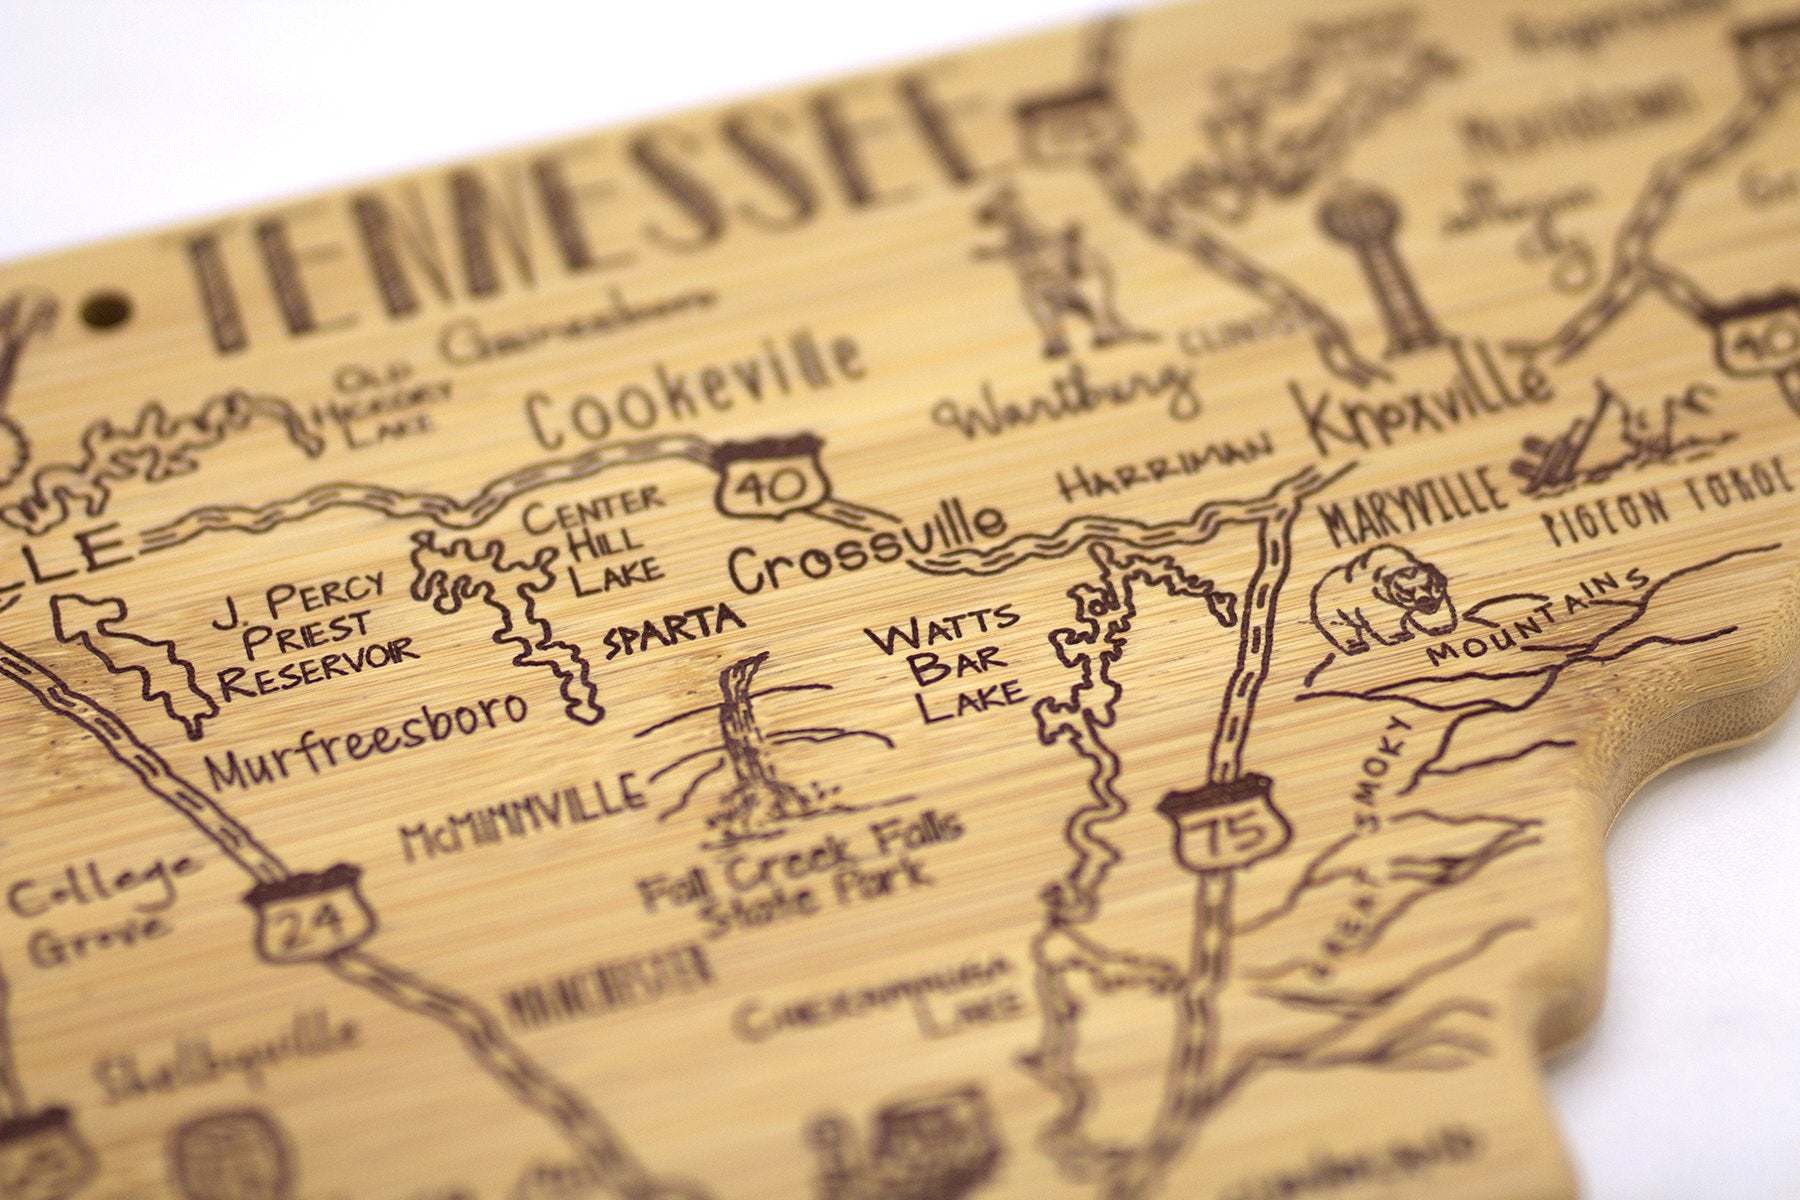 TENNESSEE
Gainesboro
OLD
HICKORY
LAKE
Cookeville
40
CENTER
HILL
LAKE
LLE
J. PERCY
PRIEST
RESERVOIR
Crossville
SPARTA
Wartburg
CLINTON
HARRIMAN
Knoxville
Morristown
40
MARYVILLE
PIGEON FORGE
WATTS
BAR
LAKE
GREAT SMOKY MOUNTAINS
Murfreesboro
McMINNVILLE
Fall Creek Falls
State Park
75
College
Grove
24
MANCHESTER
CHICKAMAUGA
LAKE
Shelbyville